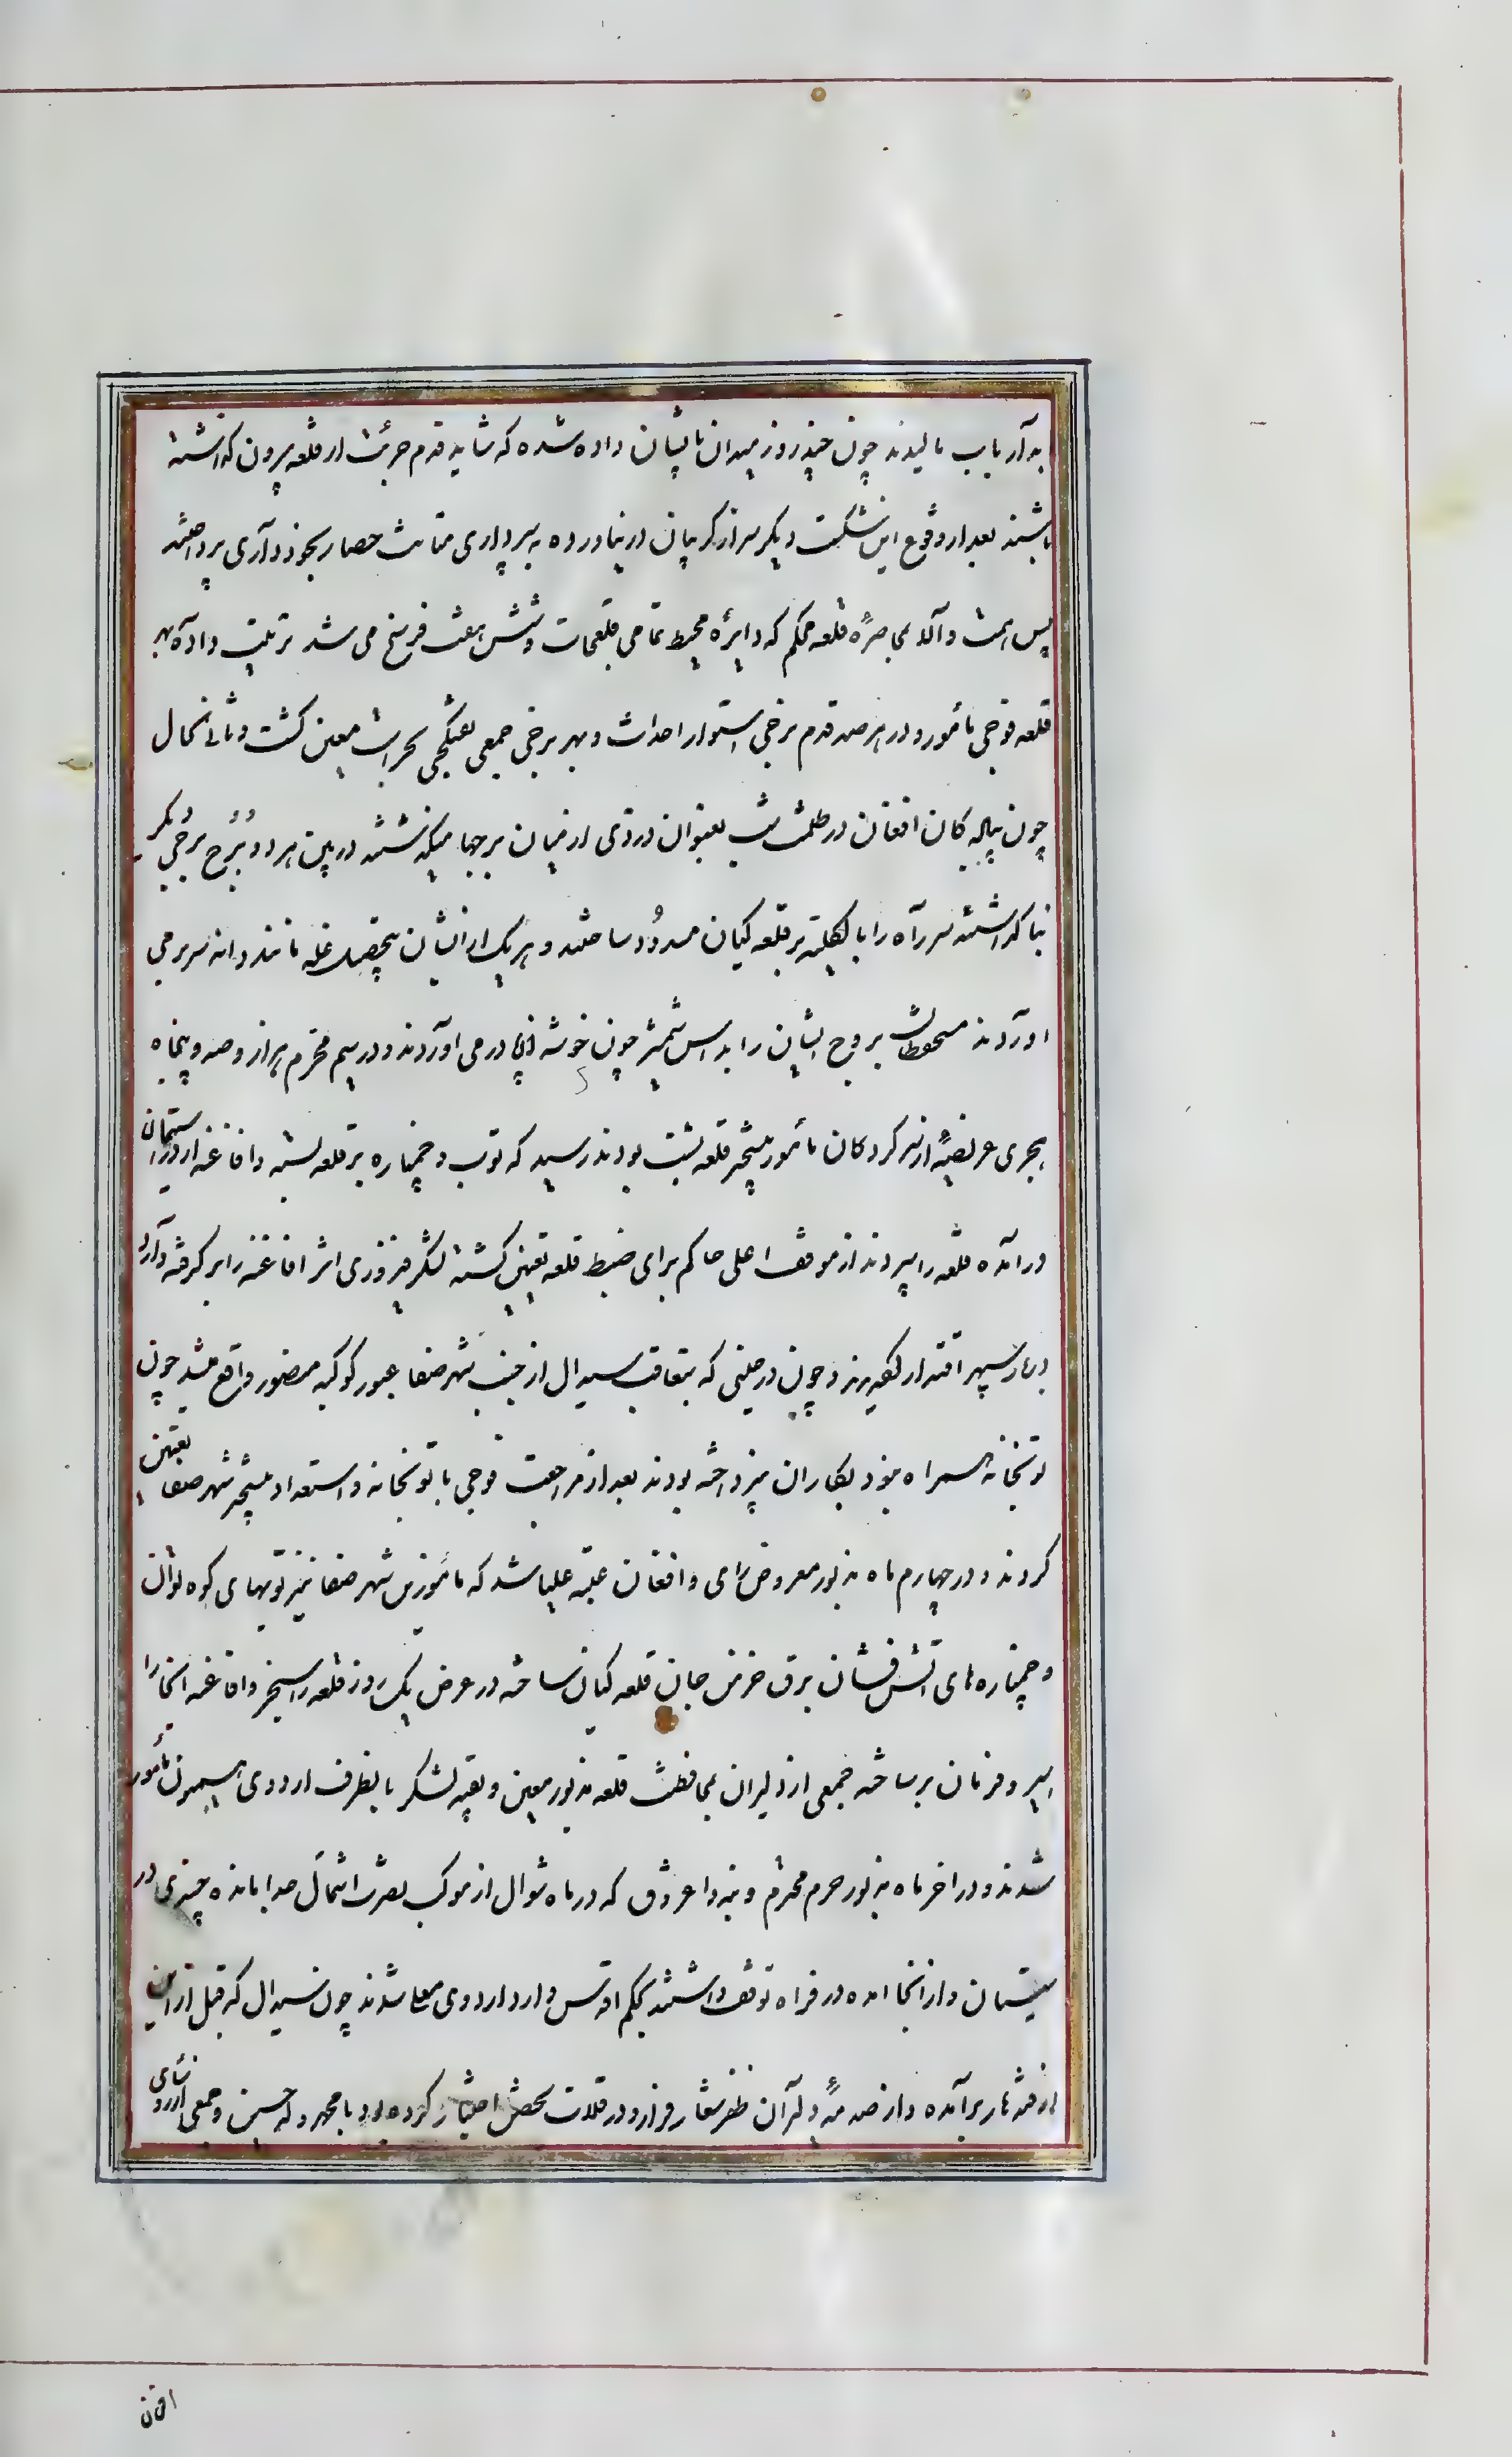 بدآر باب مالیدند چون چند روز میدان بایشان داده شده که شاید قدم جرئت از قلعه بیرون گذاشته
باشند بعد از وقوع این شکست دیگر سر از گریبان در نیاورده به سپرداری متانت حصار بخودداری پرداختند
پس همت والا بمحاصرهٔ قلعه محکم که دایرهٔ محیط تمامی قلعجات و شش هفت فرسخ می شد ترتیب داده بهر
قلعه فوجی مأمور و در هر صد قدم برجی استوار احداث و بهر برجی جمعی تفنکچی بحراست معین گشت و ثانی الحال
چون پیاده کان افغان در ظلمت شب بعنوان دزدی از میان برجها میگذشتند در بین هر دو بُرج برجی دیگر
بنا گذاشته سر راه را بالکلیه بر قلعه کیان مسدُود ساختند و هر یک از ایشان بتحصیل غله مانند دانه سر بر می
اوردند مستحفظان بروج ایشان را بداس شمشیر چون خوشه از پا در می اوردند و در سیم محرم هزار و صد و پنجاه
هجری عریضهٔ از سرکردکان مأمور بتسخیر قلعه بست بودند رسید که توب و خمپاره بر قلعه بسته و افاغنه از در استیمان
در امده قلعه را سپردند از موقف اعلی حاکم برای ضبط قلعه تعیین گشته لشکر فیروزی اثر افاغنه را بر گرفته وارد
دربار سپهر اقتدار گردیدند و چون در حینی که بتعاقب سیدال از جنب شهر صفا عبور کوکبه منصور واقع میشد چون
توبخانه همراه نبود بکار آن نپرداخته بودند بعد از مراجعت فوجی با توبخانه و استعداد بتسخیر شهر صفا تعیین
کردند و در چهارم ماه مذبور معروض رامی واقفان عتبه علیا شد که مأمورین شهر صفا نیز توبهای کوه توان
و خمپاره های آتش فشان برق خرمن جان قلعه کیان ساخته در عرض یک روز قلعه را تسخیر و افاغنه انجا را
اسیر و فرمان بر ساخته جمعی از دلیران بمحافظت قلعه مذبور معین و بقیه لشکر بانطرف اردوی همیون مأمور
شدند و در اخر ماه مذبور حرم محترم و بنه و اعروق که در ماه شوال از موکب نصرت اشتمال جدا مانده چندی در
سیستان و از انجا امده در فراه توقف داشتند بحکم اقدس وارد اردوی معلی شدند چون سیدال که قبل از این
از قندهار برآمده و از صدمهٔ دلیران ظفر شعار فرار و در قلات تحصن اختیار کرده بود با محمد ولد حسین و جمعی از رؤسای
افغان